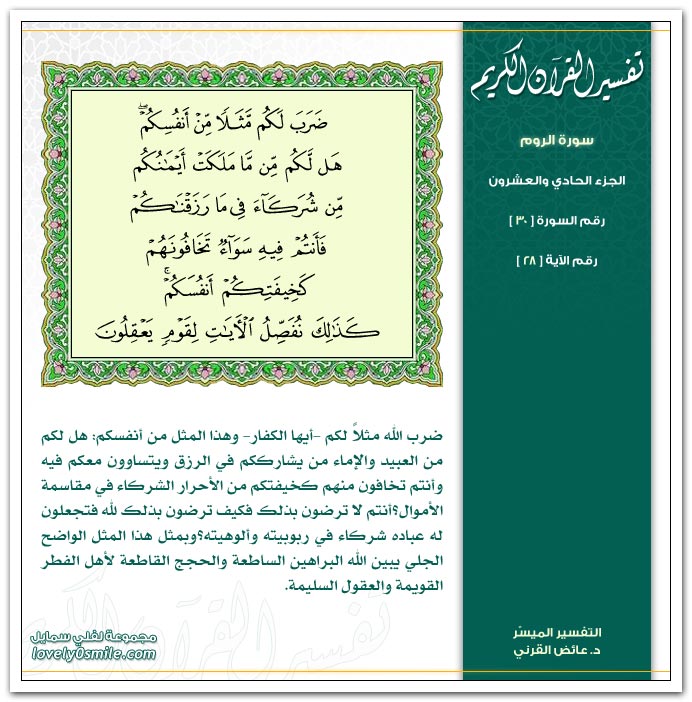 تفسير القرآن الكريم
سورة الروم
الجزء الحادي والعشرون
رقم السورة [ ٣٠ ]
رقم الآية [ ٢٨ ]
ضَرَبَ لَكُم مَّثَلًا مِّنْ أَنفُسِكُمْ ۖ
هَل لَّكُم مِّن مَّا مَلَكَتْ أَيْمَـٰنُكُم
مِّن شُرَكَآءَ فِى مَا رَزَقْنَـٰكُمْ
فَأَنتُمْ فِيهِ سَوَآءٌ تَخَافُونَهُمْ
كَخِيفَتِكُمْ أَنفُسَكُمْ ۚ
كَذَٰلِكَ نُفَصِّلُ ٱلْـَٔايَـٰتِ لِقَوْمٍ يَعْقِلُونَ
ضرب الله مثلاً لكم -أيها الكفار- وهذا المثل من أنفسكم: هل لكم
من العبيد والإماء من يشارككم في الرزق ويتساوون معكم فيه
وأنتم تخافون منهم كخيفتكم من الأحرار الشركاء في مقاسمة
الأموال؟أنتم لا ترضون بذلك فكيف ترضون بذلك لله فتجعلون
له عباده شركاء في ربوبيته وألوهيته؟وبمثل هذا المثل الواضح
الجلي يبين الله البراهين الساطعة والحجج القاطعة لأهل الفطر
القويمة والعقول السليمة.
تفسير القرآن الكريم
مجموعة لفلي سمايل
lovely0smile.com
التفسير الميسّر
د. عائض القرني